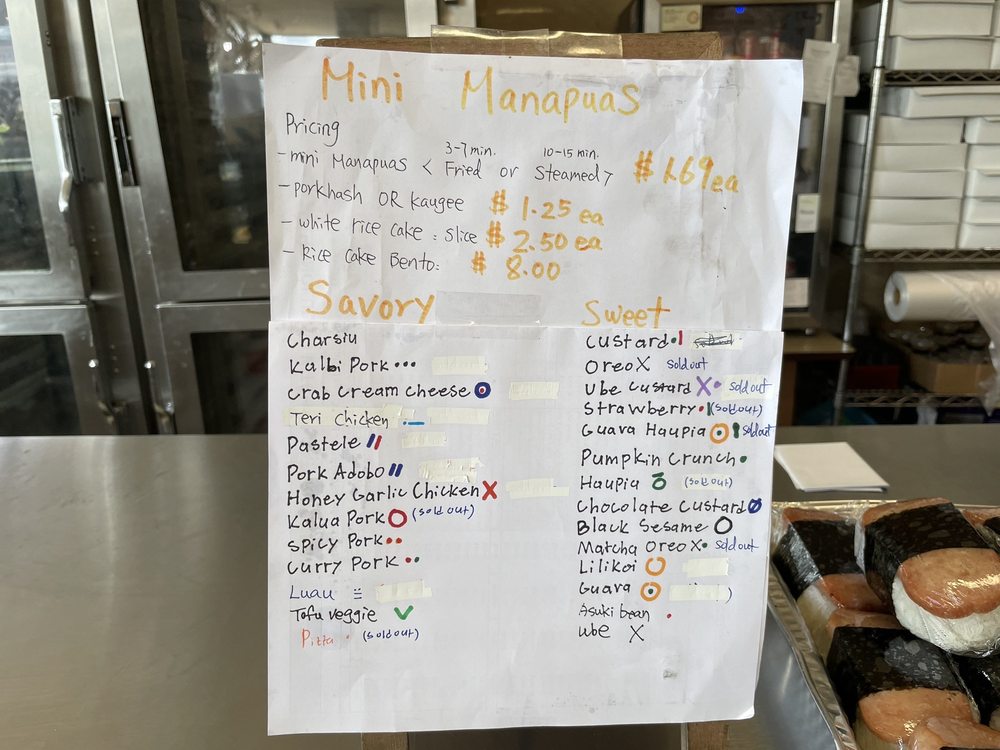 Mini Manapuas
Pricing
3-7 min. 10-15 min.
- mini Manapuas < Fried or steamed > $1.69 ea
- porkhash OR kaugee $1.25 ea
- white rice cake : slice $2.50 ea
- Rice cake Bento: $8.00
Savory
Charsiu
Kalbi Pork
Crab cream cheese
Teri Chicken
Pastele
Pork Adobo
Honey Garlic Chicken X
Kalua Pork (sold out)
Spicy Pork
Curry Pork
Luau
Tofu veggie
Pizza (sold out)
Sweet
Custard
Oreo X sold out
Ube custard X sold out
Strawberry (sold out)
Guava Haupia sold out
Pumpkin Crunch
Haupia (sold out)
Chocolate Custard
Black Sesame
Matcha Oreo X sold out
Lilikoi
Guava )
Asuki bean
ube X